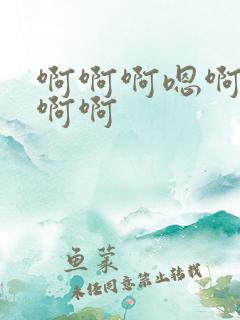 啊啊啊嗯啊
啊啊
鱼菜
未经同意禁止转载